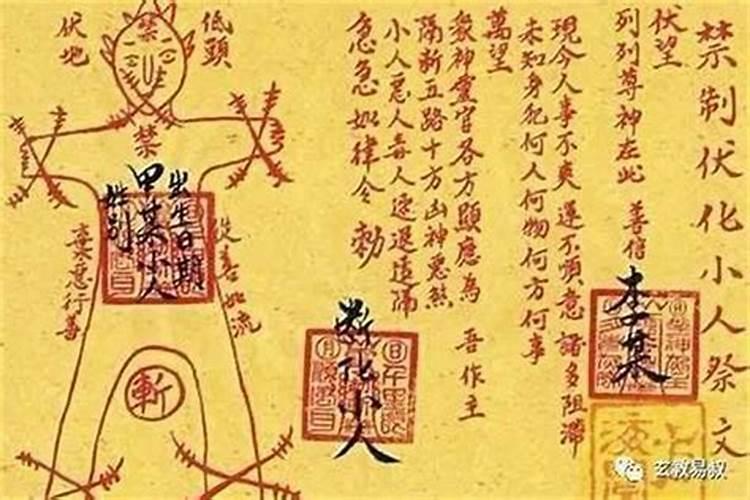 禁制伏化小人祭文
伏望
列列尊神在此 善信
李某
現今人事不爽 運不順意 諸多阻滯
未知身犯何人何物何方何事
萬望
眾神靈官各方顯應為 吾作主
隔斬五路十方凶神惡煞
小人惡人毒人速退遠隔
急急如律令 勅
斬化小人
低頭
伏地
禁
禁
出生日期
甲某小人
性别
從善如流
棄惡行善
斬
玄教易叔